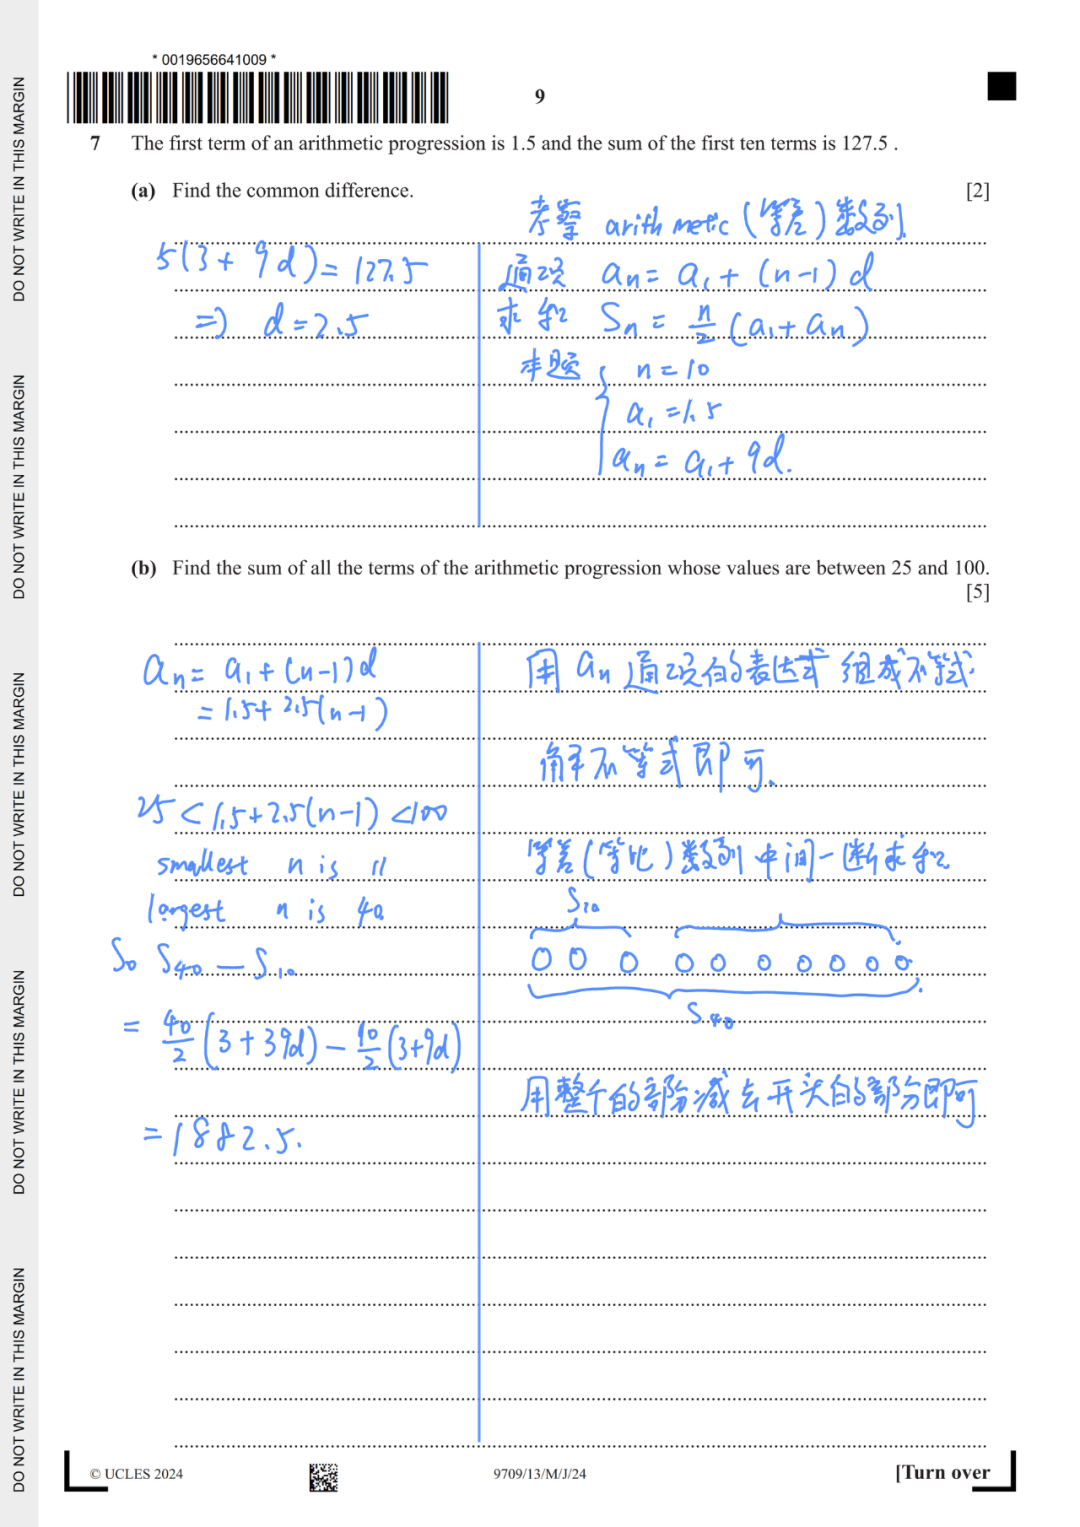 DO NOT WRITE IN THIS MARGIN
DO NOT WRITE IN THIS MARGIN
DO NOT WRITE IN THIS MARGIN
DO NOT WRITE IN THIS MARGIN
DO NOT WRITE IN THIS MARGIN
* 0019656641009 *
9
7 The first term of an arithmetic progression is 1.5 and the sum of the first ten terms is 127.5 .
(a) Find the common difference. [2]
5(3 + 9d) = 127.5
=> d = 2.5
考察 arithmetic (等差) 数列.
通项 an = a1 + (n-1) d
求和 Sn = n/2 (a1 + an)
本题 { n = 10
a1 = 1.5
an = a1 + 9d.
(b) Find the sum of all the terms of the arithmetic progression whose values are between 25 and 100.
[5]
an = a1 + (n-1)d
= 1.5 + 2.5(n-1)
25 < 1.5 + 2.5(n-1) < 100
smallest n is 11
largest n is 40
So S40 - S10
= 40/2 (3 + 39d) - 10/2 (3+9d)
= 1882.5.
用 an 通项的表达式 组成不等式.
解不等式即可.
等差(等比)数列 中间一断求和
S10
S40
用整个的部分减去开头的部分即可
© UCLES 2024
9709/13/M/J/24
[Turn over